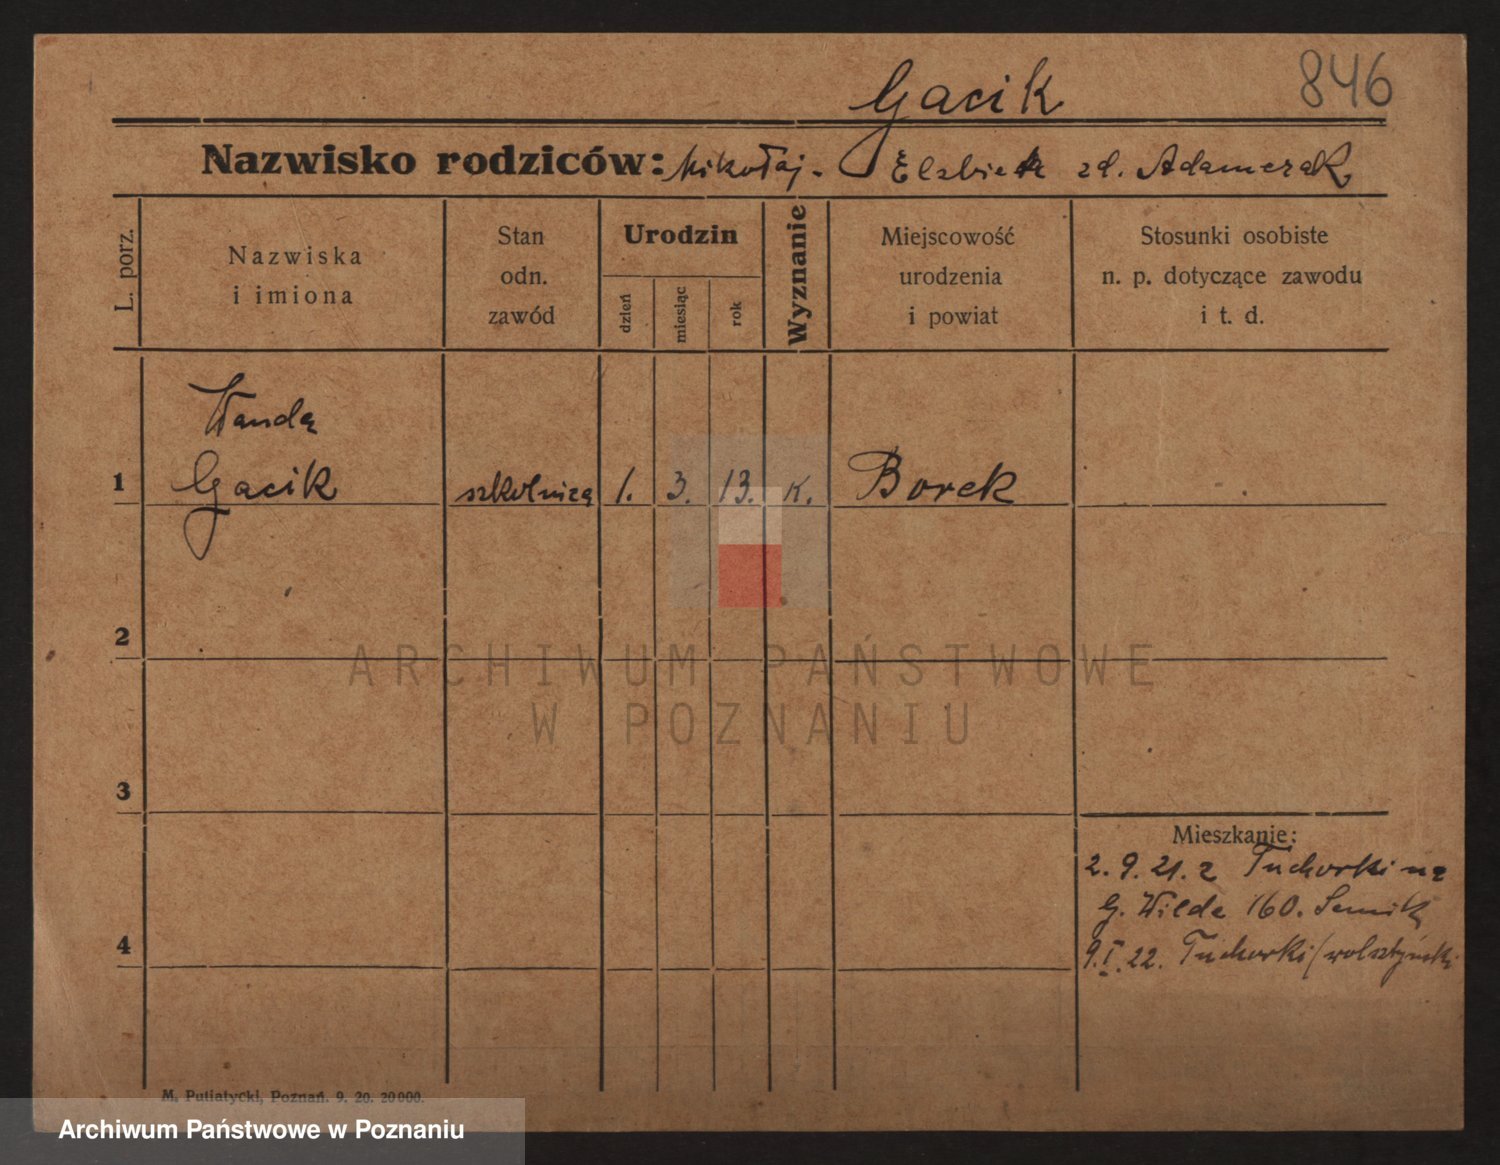 Gacik 846
Nazwisko rodziców: Mikołaj - Elżbieta zd. Adamczak
L. porz.
Nazwiska
i imiona
Stan
odn.
zawód
Urodzin
dzień
miesiąc
rok
Wyznanie
Miejscowość
urodzenia
i powiat
Stosunki osobiste
n. p. dotyczące zawodu
i t. d.
Wanda
1 Gacik szkolnicą 1. 3. 13. K. Borek
2
ARCHIWUM PAŃSTWOWE
W POZNANIU
3
Mieszkanie:
2. 9. 21. z Tuchorki na
G. Wilde 160.
4
9. I. 22. Tuchorki / wolsztyński
M. Putiatycki, Poznań. 9. 20. 20000.
Archiwum Państwowe w Poznaniu